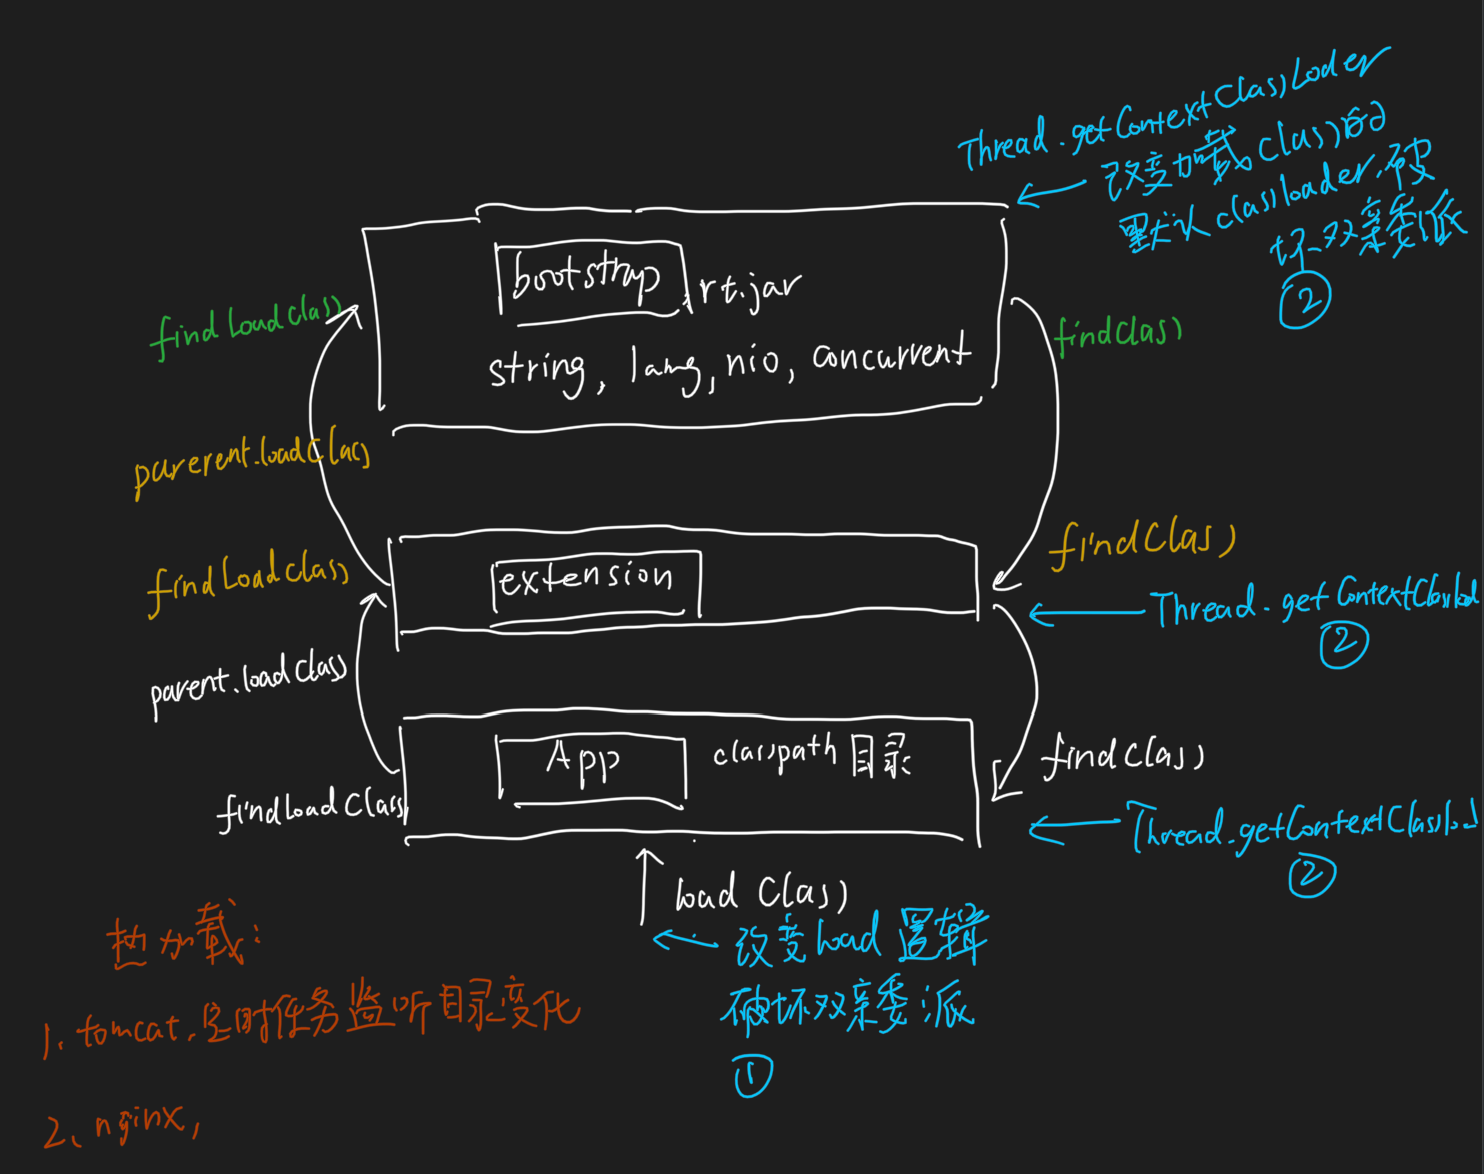 Thread.getContextClassLoder
改变加载class的
默认classloader,破
坏双亲委派
②
bootstrap rt.jar
string, lang, nio, concurrent
findLoadClass
findclass
parerent.loadClass
findLoadclass
extension
findClass
Thread.getContextClassload
②
parent.loadClass
App classpath目录
findClass
findLoadClass
Thread.getContextClassload
②
load Class
改变load逻辑
破坏双亲委派
①
热加载:
1、tomcat,定时任务监听目录变化
2、nginx,